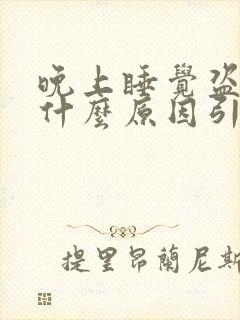 晚上睡覺盜
什麼原因引
提里昂蘭尼斯